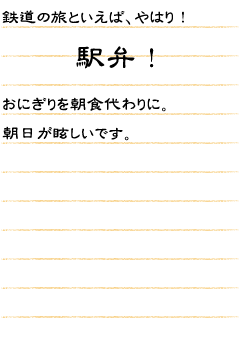 鉄道の旅といえば、やはり！
駅弁！
おにぎりを朝食代わりに。
朝日が眩しいです。